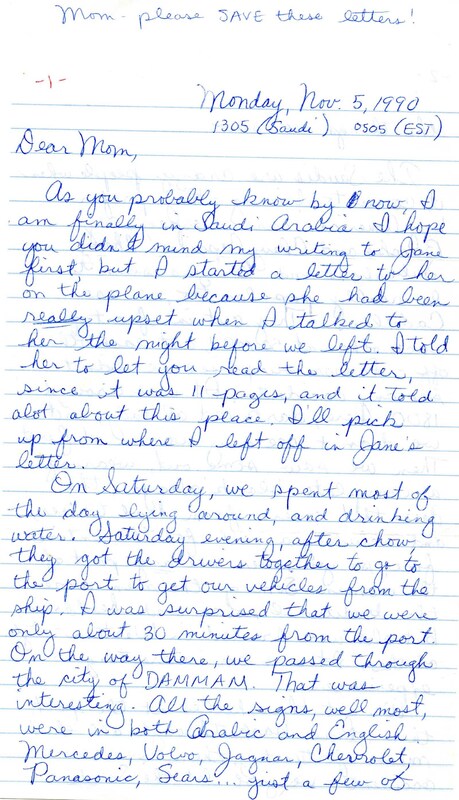 Mom - please SAVE these letters!
-1-
Monday, Nov. 5, 1990
1305 (Saudi) 0505 (EST)
Dear Mom,
As you probably know by now, I
am finally in Saudi Arabia. I hope
you didn't mind my writing to Jane
first, but I started a letter to her
on the plane because she had been
really upset when I talked to
her the night before we left. I told
her to let you read the letter,
since it was 11 pages, and it told
alot about this place. I'll pick
up from where I left off in Jane's
letter.
On Saturday, we spent most of
the day lying around, and drinking
water. Saturday evening, after chow,
they got the drivers together to go to
the port to get our vehicles from the
ship. I was surprised that we were
only about 30 minutes from the port.
On the way there, we passed through
the city of DAMMAM. That was
interesting. All the signs, well most,
were in both Arabic and English.
Mercedes, Volvo, Jaguar, Chevrolet,
Panasonic, Sears... just a few of